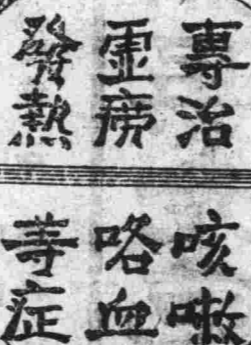 專治
虛癆
發熱
咳嗽
咯血
等症